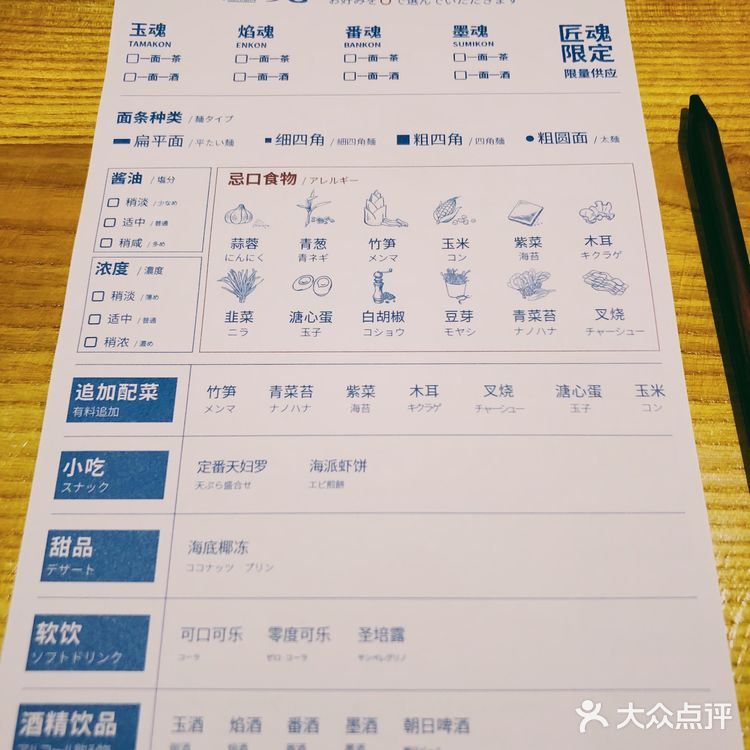 お好みを○で選んでいただきます
玉魂 焰魂 番魂 墨魂 匠魂
TAMAKON ENKON BANKON SUMIKON 限定
一面一茶 一面一茶 一面一茶 一面一茶 限量供应
一面一酒 一面一酒 一面一酒 一面一酒
面条种类 / 麺タイプ
扁平面 / 平たい麺 细四角 / 細四角麺 粗四角 / 四角麺 粗圆面 / 太麺
酱油 / 塩分
稍淡 / 少なめ
适中 / 普通
稍咸 / 多め
浓度 / 濃度
稍淡 / 薄め
适中 / 普通
稍浓 / 濃め
忌口食物 / アレルギー
蒜蓉 青葱 竹笋 玉米 紫菜 木耳
にんにく 青ネギ メンマ コン 海苔 キクラゲ
韭菜 溏心蛋 白胡椒 豆芽 青菜苔 叉烧
ニラ 玉子 コショウ モヤシ ナノハナ チャーシュー
追加配菜 竹笋 青菜苔 紫菜 木耳 叉烧 溏心蛋 玉米
有料追加 メンマ ナノハナ 海苔 キクラゲ チャーシュー 玉子 コン
小吃 定番天妇罗 海派虾饼
スナック 天ぷら盛合せ エビ煎餅
甜品 海底椰冻
デザート ココナッツ プリン
软饮 可口可乐 零度可乐 圣培露
ソフトドリンク コーラ ゼロ コーラ サンペレグリノ
酒精饮品 玉酒 焰酒 番酒 墨酒 朝日啤酒
大众点评